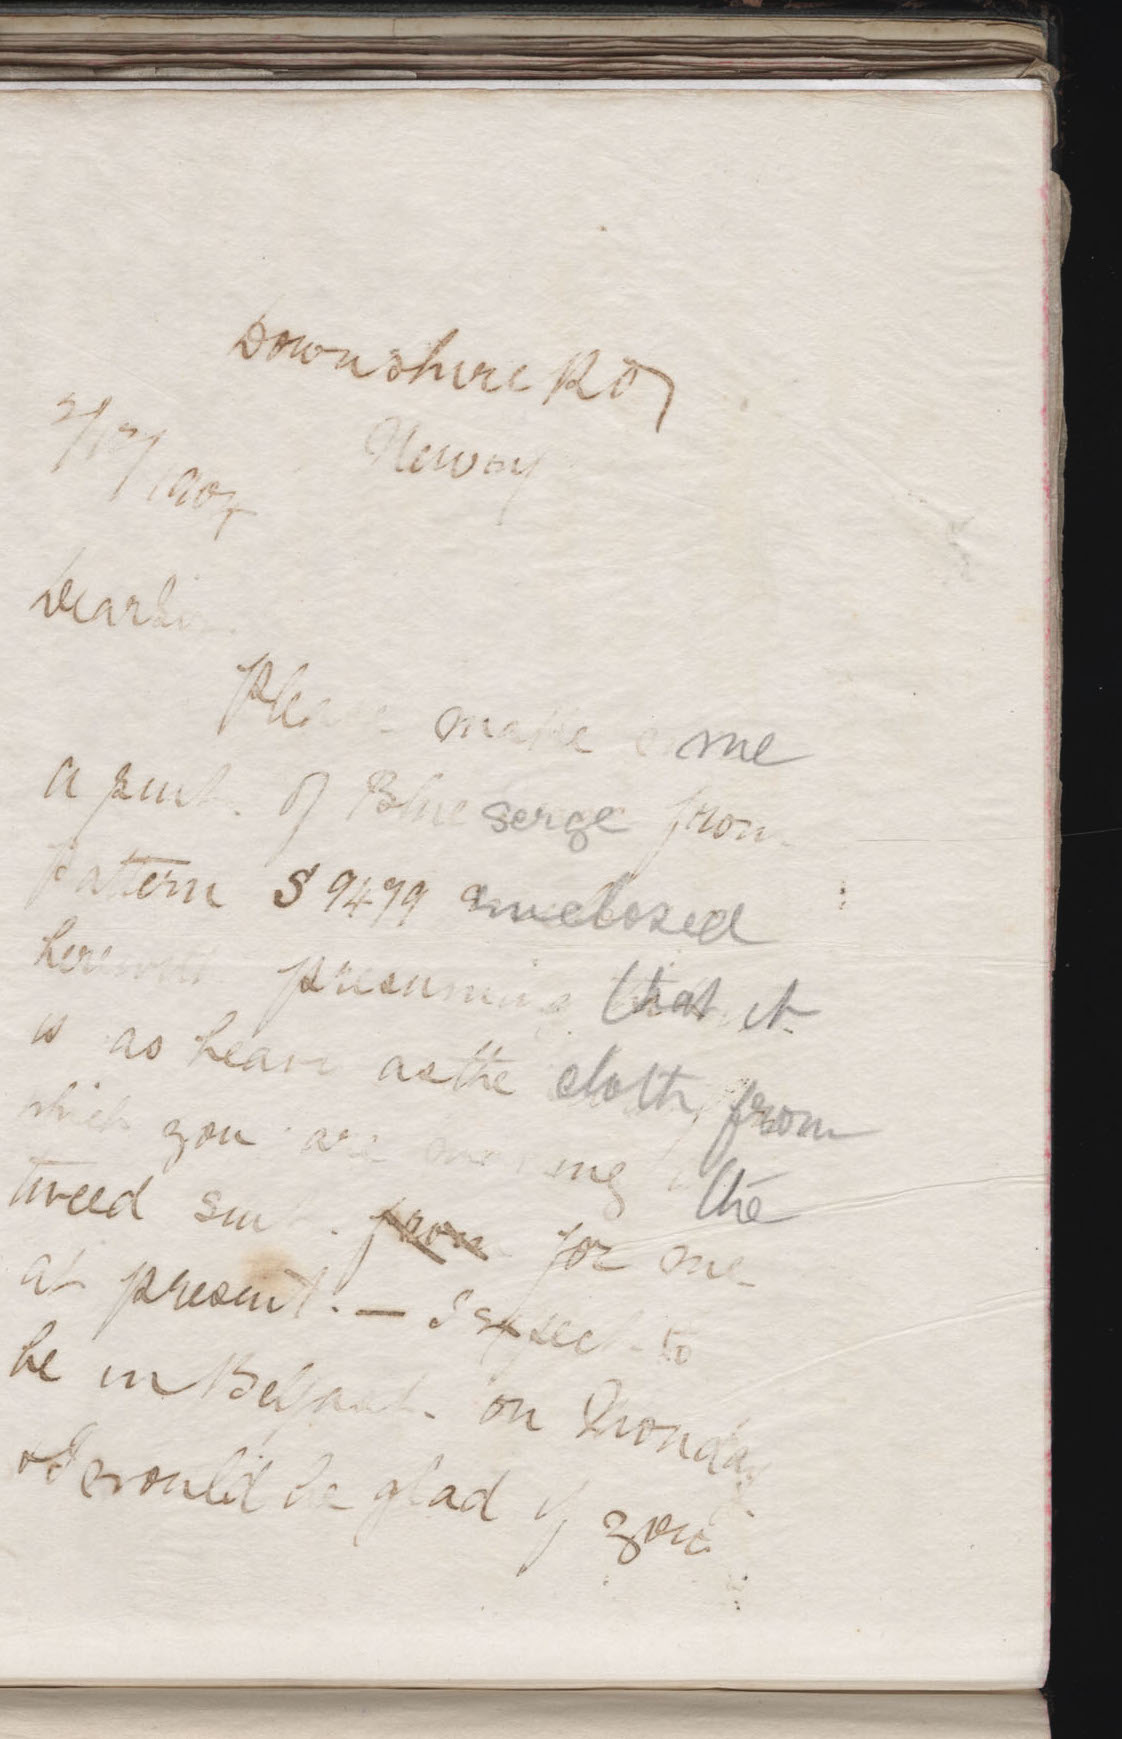 Downshire Rd
Newry
2/12/1907
Dear Sir
Please make me
a suit of Blue serge from
pattern S 9499 enclosed
herewith presuming that it
is as heavy as the cloth from
which you are making the
tweed suit from for me
at present. — I expect to
be in Belfast on Monday
& I would be glad if you